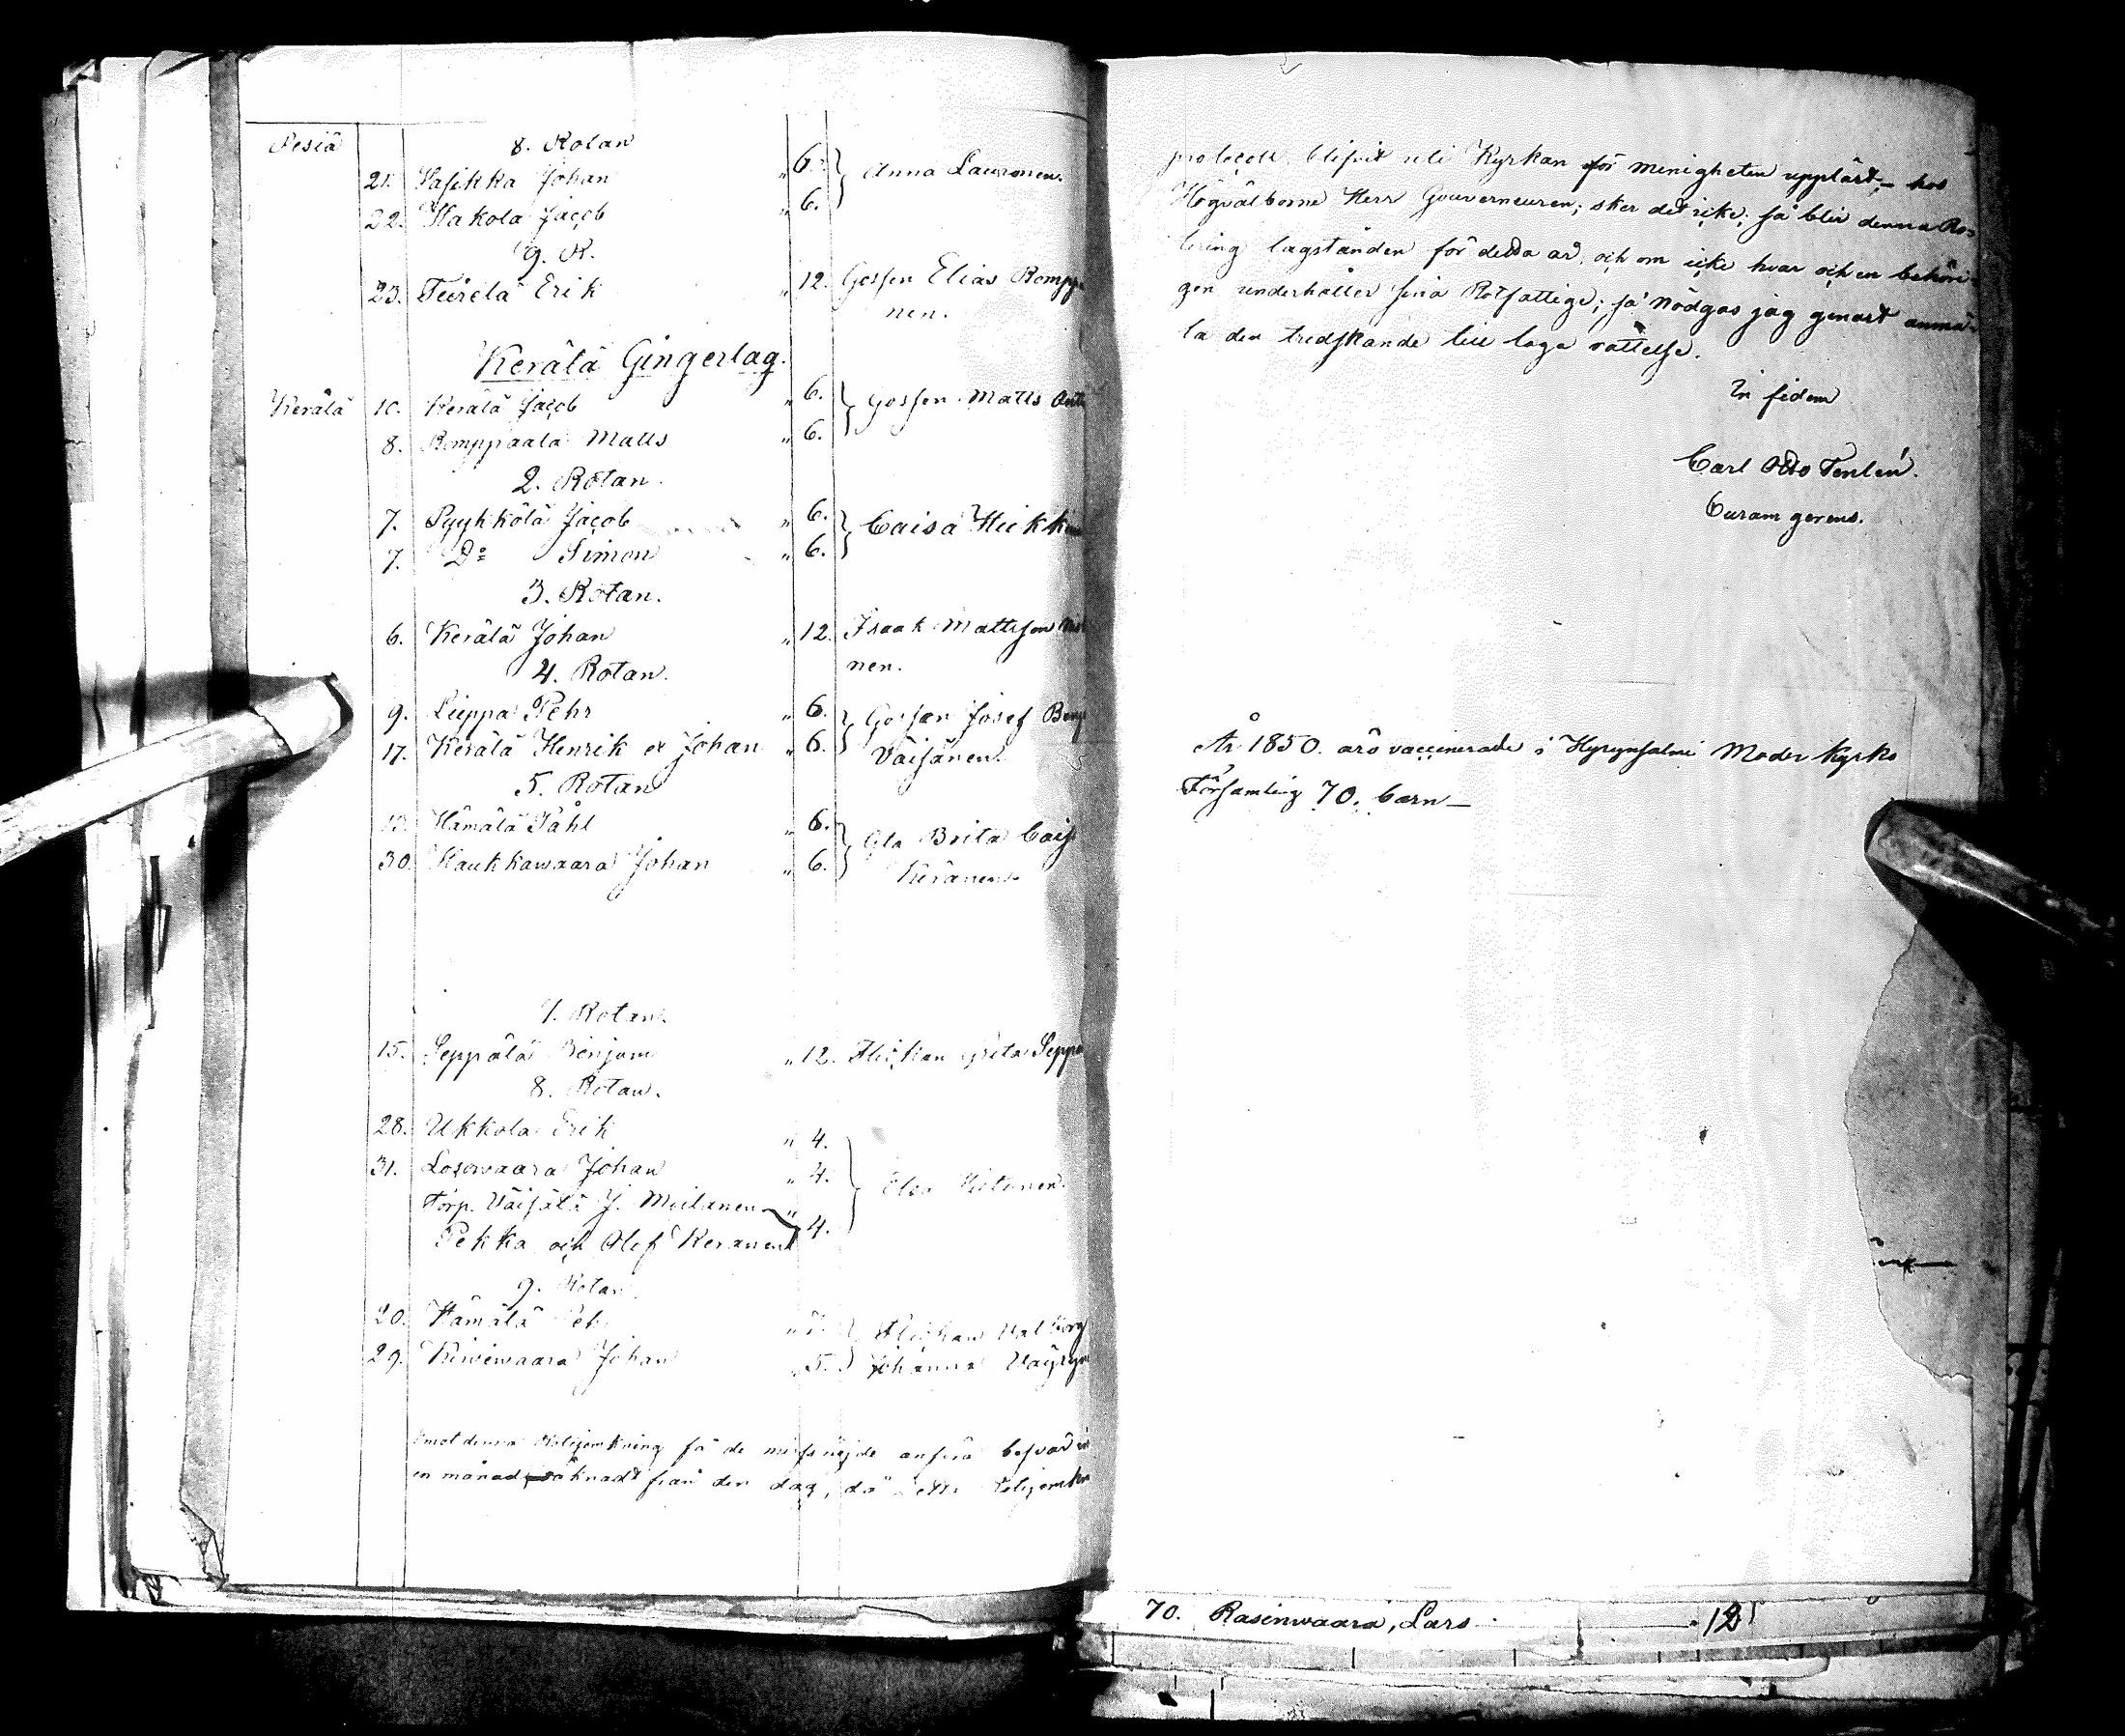 Pesiä 8. Rotan
21. Jaſikka Johan " 6. Anna Lauronen.
22. Hakola Jacob " 6.
9. R.
23. Teirelä Erik " 12. Gossen Elias Romppa
nen.
Kerälä Gingerlag.
Kerälä 10. Kerälä Jacob " 6. Gossen Matts
8. Romppaala Matts " 6.
2. Rotan.
7. Pyykkölä Jacob " 6. Caisa Heikk
7. Do Simon " 6.
3. Rotan.
6. Kerälä Johan " 12. Isaak Mattsson
nen.
4. Rotan.
9. Lieppa Pehr " 6. Gossen Josef Benj
17. Kerälä Henrik et Johan " 6. Väisänen.
5. Rotan
13. Hämälä Påhl " 6. Gla Brita Cajs
30. Kaukkawaara Johan " 6. Keränen.
7. Rotan.
15. Seppälä Benjam " 12. Flickan Greta Seppä
8. Rotan.
28. Ukkola Erik " 4.
31. Losowaara Johan " 4. Elsa
Torp. Väisälä J. Moilanen "
Pekka och Olof Keränen 4.
9. Rotan.
20. Hämälä Peh " 7. Flickan Valborg
29. Kiwiwaara Johan " 5. Johanna Väyryn
Emot denna få de missnöjde anföra besvär
en månad räknadt från den dag, då detta
protocoll blifvit uti Kyrkan för menigheten uppläst; hos
Högvälborne Herr Gouverneuren; sker det icke; så blir denna Ro-
tering lagstånden för detta år, och om icke hvar och en behöri-
gen underhåller sina Rotfattige; så nödgas jag genast anmä-
la den tredskande till laga rättelse.
In fidem
Carl Otto Tenlén.
Curam gerens.
År 1850. äro vaccinerade i Hyrynsalmi Moder kyrko
Församling 70. barn
70. Rasinwaara, Lars 12